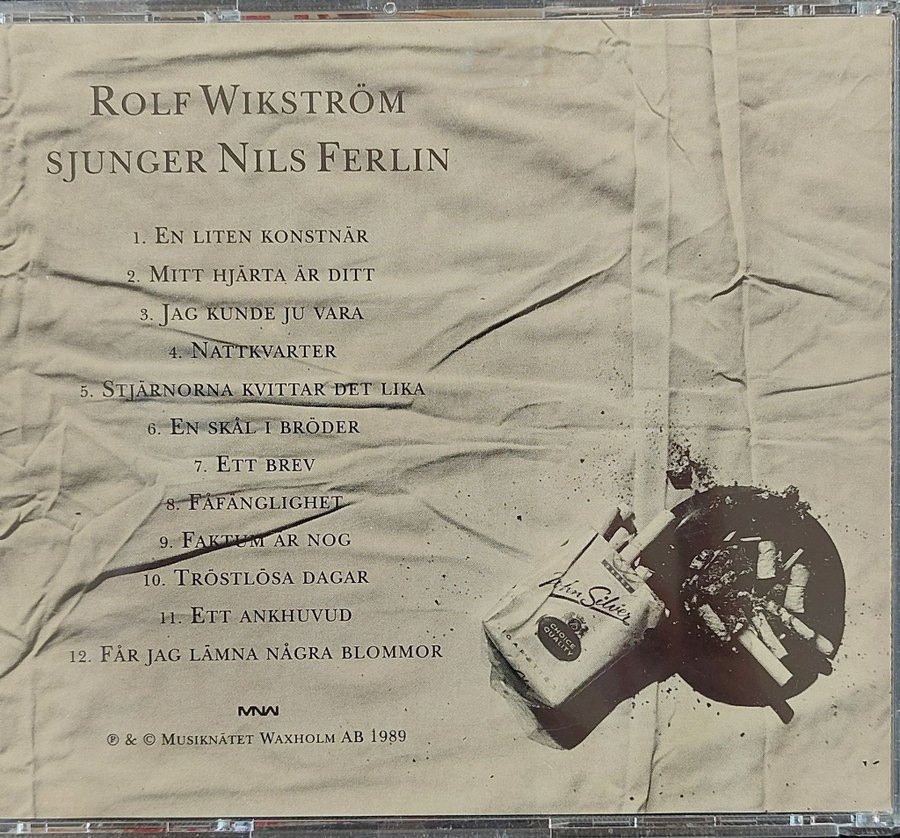 Rolf Wikström
sjunger Nils Ferlin
1. En liten konstnär
2. Mitt hjärta är ditt
3. Jag kunde ju vara
4. Nattkvarter
5. Stjärnorna kvittar det lika
6. En skål i bröder
7. Ett brev
8. Fåfänglighet
9. Faktum är nog
10. Tröstlösa dagar
11. Ett ankhuvud
12. Får jag lämna några blommor
MNW
℗ & © Musiknätet Waxholm AB 1989
John Silver
CHOICE
QUALITY